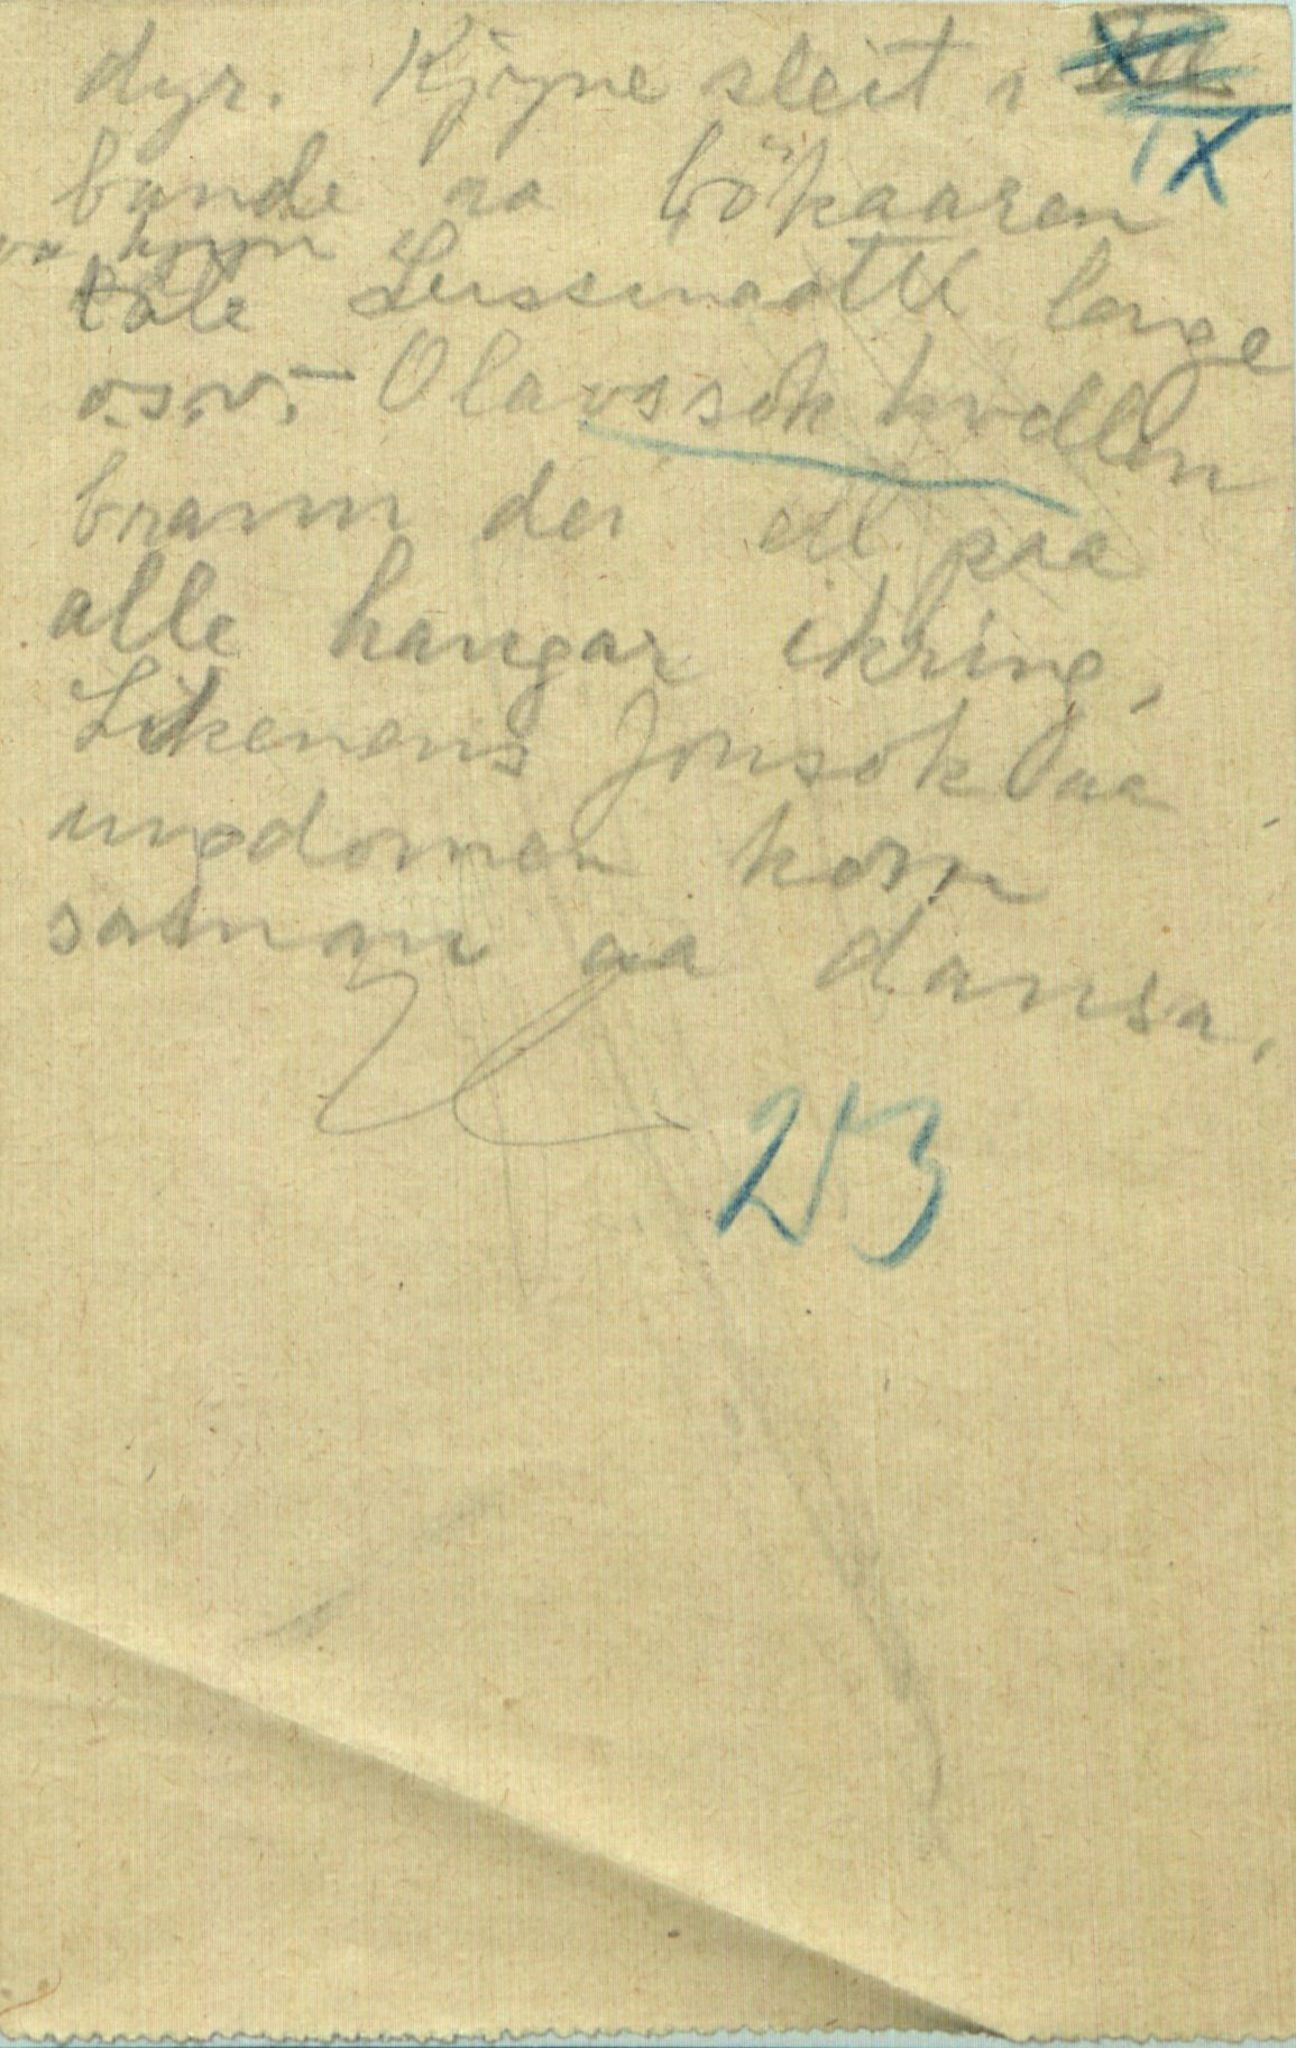 dyr. Kjyne sleit i
IX
bande aa bökaaren
tale Lussinaatti lange
o.s.v. – Olavssok kvellen
brann dei ell paa
alle haugar ikring,
Likeneins Jonsok aa
ungdomen kom
saman aa dansa.
213